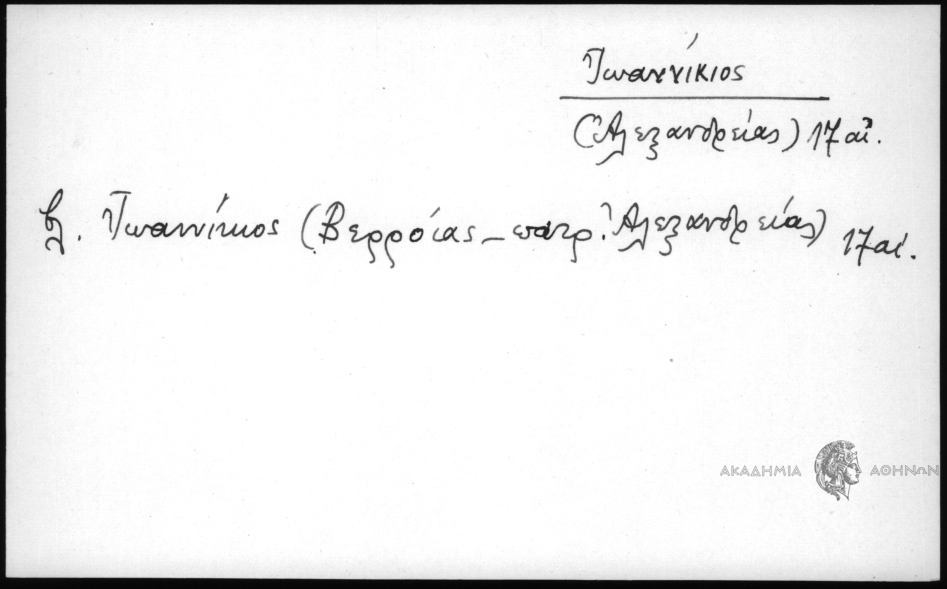 Ἰωαννίκιος
(Ἀλεξανδρείας) 17 αἰ.
βλ. Ἰωαννίκιος (Βερροίας – πατρ. Ἀλεξανδρείας) 17 αἰ.
ΑΚΑΔΗΜΙΑ ΑΘΗΝΩΝ